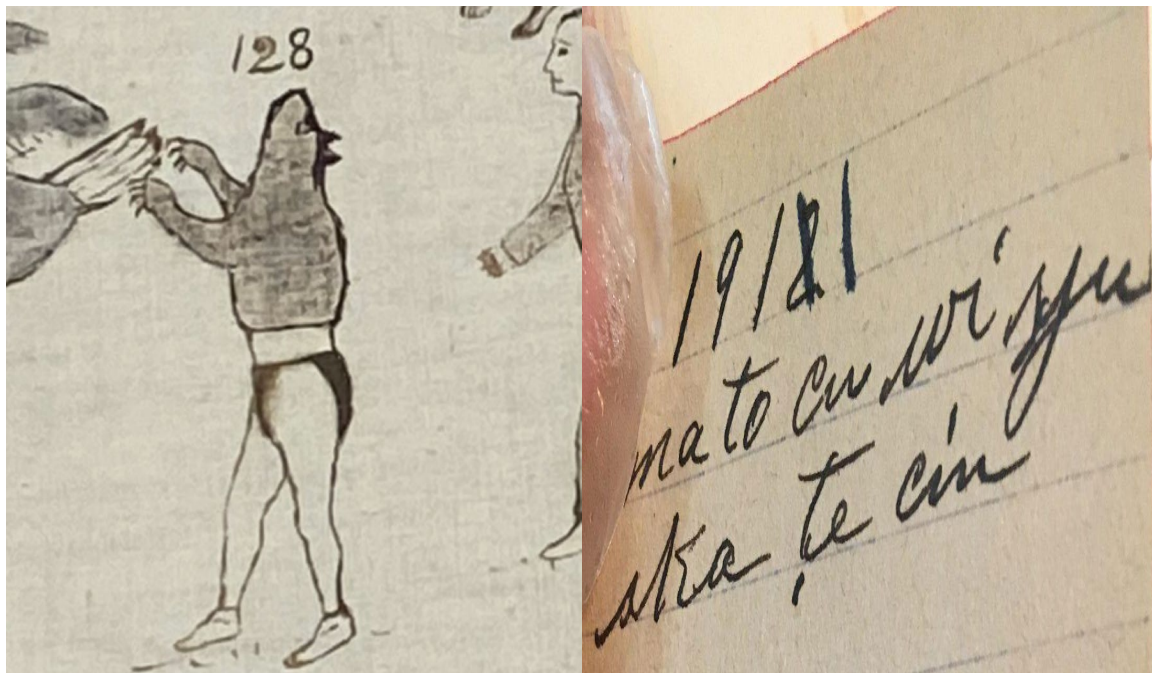 128
19181
mato cu wi yu
ska ṭe cin